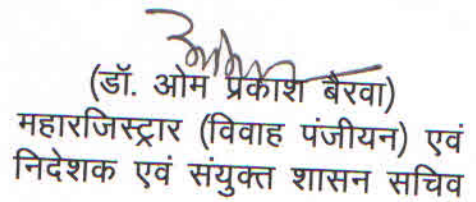 (डॉ. ओम प्रकाश बैरवा)
महारजिस्ट्रार (विवाह पंजीयन) एवं
निदेशक एवं संयुक्त शासन सचिव